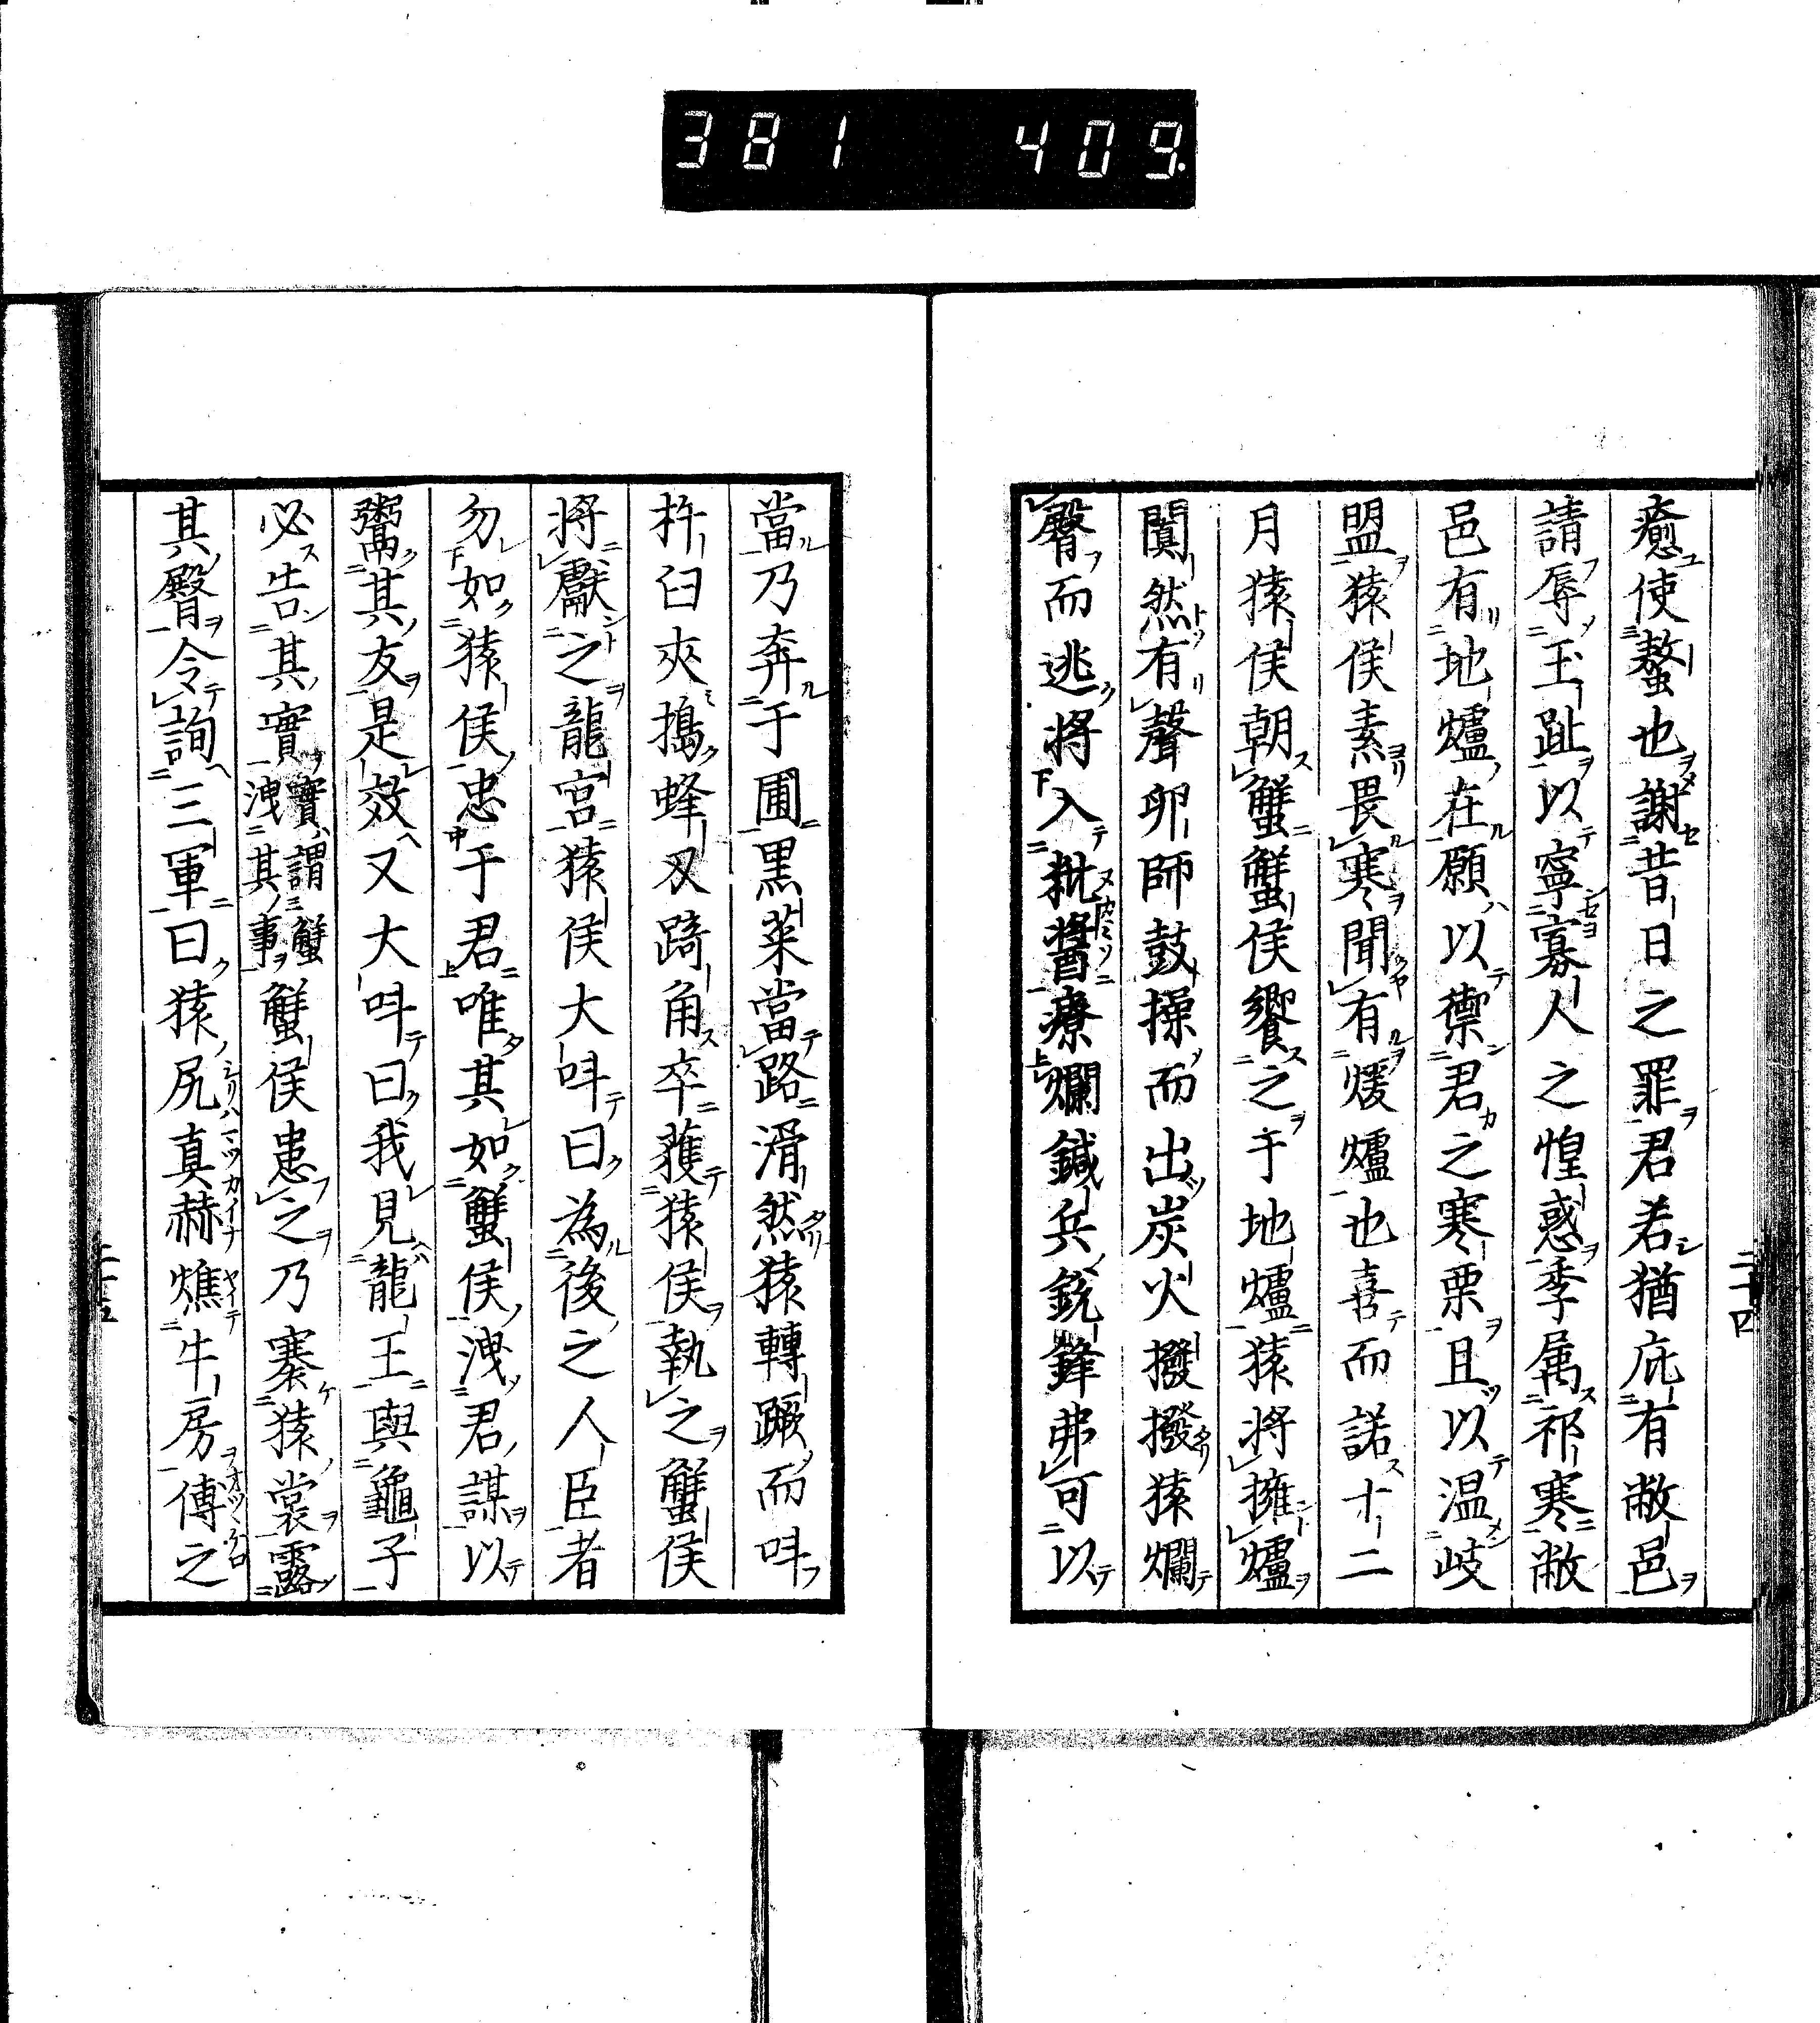 381 409.
癒使螯也謝昔日之罪君若猶庇有敝邑
請辱玉趾以寧寡人之惶惑季属祁寒敝
邑有地爐在願以禦君之寒栗且以温岐
盟猿侯素畏寒聞有煖爐也喜而諾十二
月猿侯朝蟹蟹侯饗之于地爐猿將擁爐
闐然有聲卵師鼓操而出炭火撥撥猿爛
臀而逃將入粃醬療爛鍼兵銃鋒弗可以
二十四
當乃奔于圃黒菜當路滑然猿轉蹶而呌
杵臼夾搗蜂刄踦角卒獲猿侯執之蟹侯
將獻之龍宮猿侯大呌曰為後之人臣者
勿如猿侯忠于君唯其如蟹侯洩君謀以
鬻其友是效又大呌曰我見龍王與龜子
必告其實實謂蟹洩其事蟹侯患之乃褰猿裳露
其臀令詢三軍曰猿尻真赫燋牛房傅之
二十五